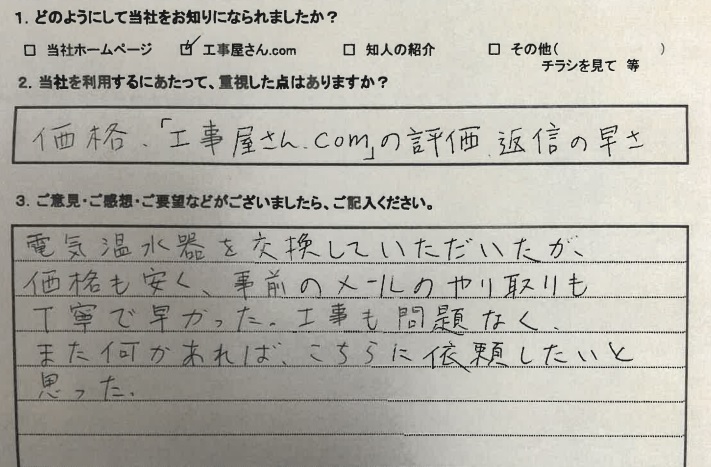 1. どのようにして当社をお知りになられましたか？
□ 当社ホームページ ☑ 工事屋さん.com □ 知人の紹介 □ その他( )
チラシを見て 等
2. 当社を利用するにあたって、重視した点はありますか？
価格、「工事屋さん.com」の評価、返信の早さ
3. ご意見・ご感想・ご要望などがございましたら、ご記入ください。
電気温水器を交換していただいたが、
価格も安く、事前のメールのやり取りも
丁寧で早かった。工事も問題なく、
また何かあれば、こちらに依頼したいと
思った。